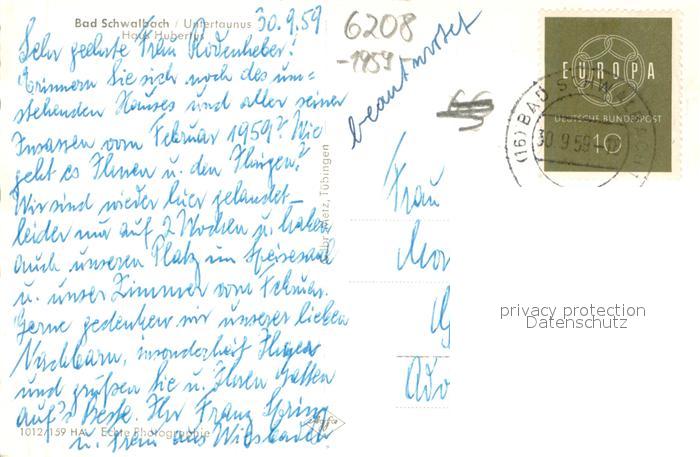 Bad Schwalbach / Untertaunus
Haus Hubertus
30.9.59
Sehr geehrte Frau Rodenheber!
Erinnern Sie sich noch des um=
stehenden Hauses und aller seiner
Insassen vom Februar 1959? Wie
geht es Ihnen u. den Ihrigen?
Wir sind wieder hier gelandet –
leider nur auf 2 Wochen u. haben
auch unseren Platz im Speisesaal
u. unser Zimmer vom Februar.
Gerne gedenken wir unserer lieben
Nachbarn, insonderheit Ihrer
und grüßen Sie u. Ihren Gatten
auf's Beste. Ihr Franz Spring
u. Frau aus Wiesbaden
1012/159 HA Echte Photographie
Metz, Tübingen
6208
-1959
beantwortet
EUROPA
DEUTSCHE BUNDESPOST
10
(16) BAD SCHWALBACH
30.9.59
Frau
privacy protection
Datenschutz